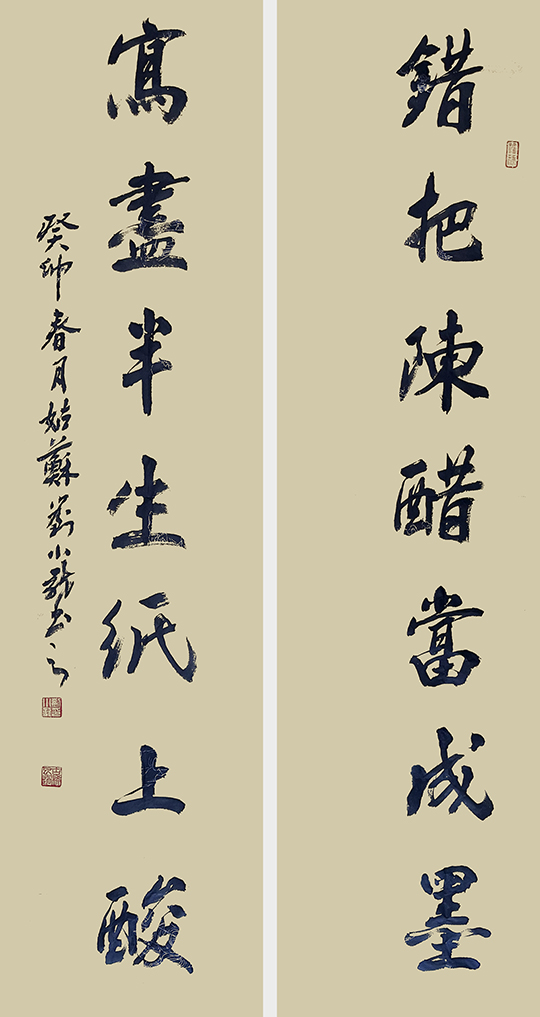 錯把陳醋當成墨
寫盡半生紙上酸
癸卯春月姑蘇劉小龍書